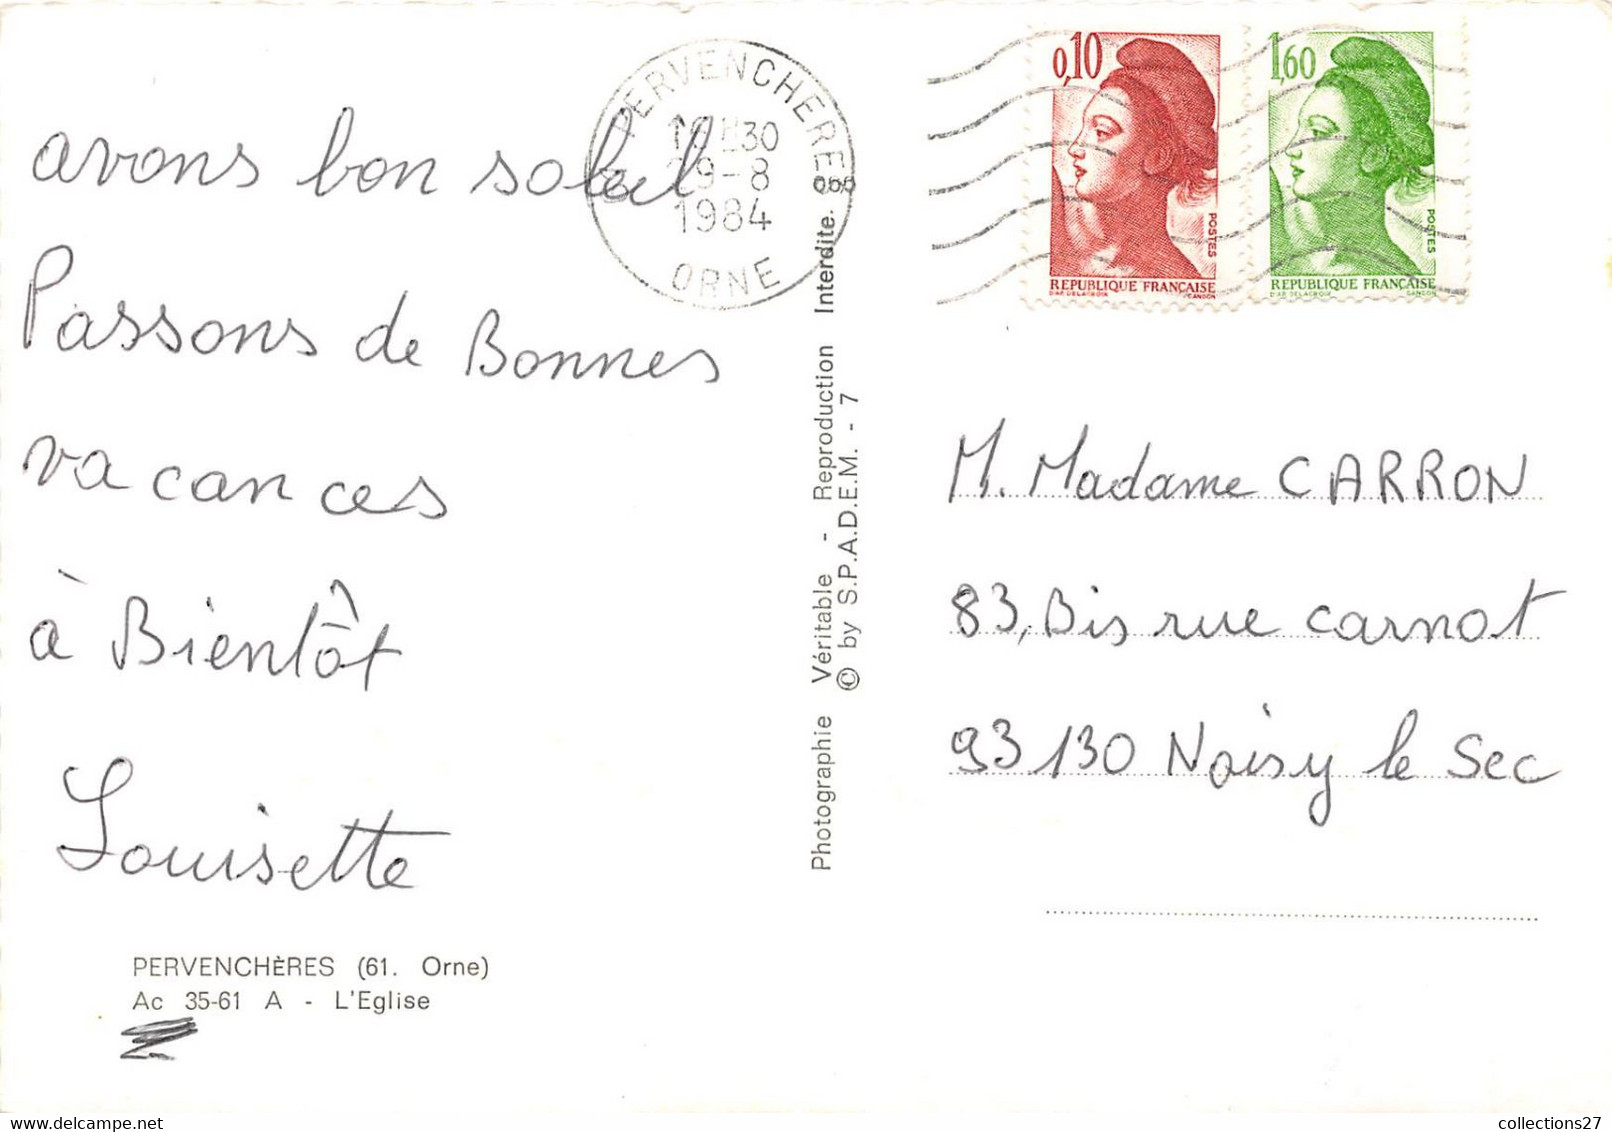 avons bon soleil
Passons de Bonnes
vacances
à Bientôt
Louisette
PERVENCHÈRES (61. Orne)
Ac 35-61 A - L'Eglise
Photographie Véritable - Reproduction Interdite.
© by S.P.A.D.E.M. - 7
PERVENCHERES
30
9-8
1984
ORNE
0,10
POSTES
REPUBLIQUE FRANÇAISE
D'AP. DELACROIX GANDON
1,60
POSTES
REPUBLIQUE FRANÇAISE
D'AP. DELACROIX GANDON
M. Madame CARRON
83, Bis rue carnot
93130 Noisy le Sec
collections27